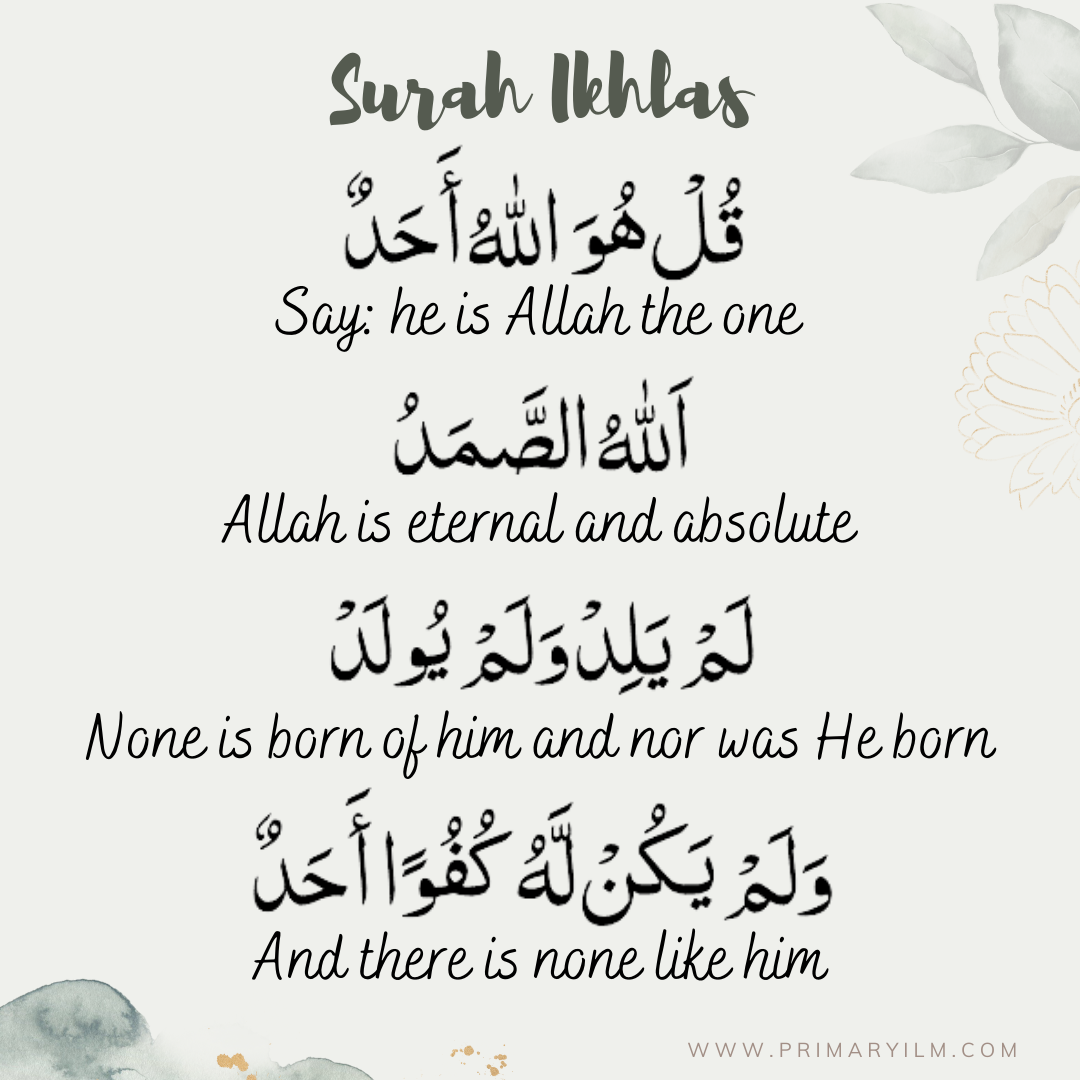 Surah Ikhlas
قُلْ هُوَ اللّٰهُ أَحَدٌ
Say: he is Allah the one
اَللّٰهُ الصَّمَدُ
Allah is eternal and absolute
لَمْ يَلِدْ وَلَمْ يُولَدْ
None is born of him and nor was He born
وَلَمْ يَكُنْ لَّهُ كُفُوًا أَحَدٌ
And there is none like him
WWW.PRIMARYILM.COM